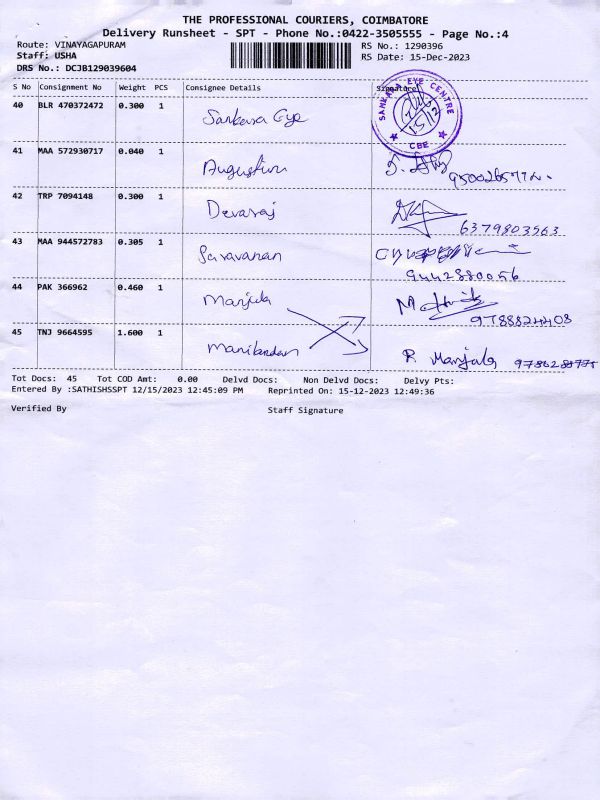 THE PROFESSIONAL COURIERS, COIMBATORE
Delivery Runsheet - SPT - Phone No.:0422-3505555 - Page No.:4
Route: VINAYAGAPURAM RS No.: 1290396
Staff: USHA RS Date: 15-Dec-2023
DRS No.: DCJB129039604
S No Consignment No Weight PCS Consignee Details Signature
40 BLR 470372472 0.300 1 Sankara Eye
SANKARA EYE CENTRE CBE 15/12
41 MAA 572930717 0.040 1 Augustin
42 TRP 7094148 0.300 1 Devaraj 6379803563
43 MAA 944572783 0.305 1 Saravanan 9442880056
44 PAK 366962 0.460 1 Manjula
45 TNJ 9664595 1.600 1 Manikandan R. Manjula
Tot Docs: 45 Tot COD Amt: 0.00 Delvd Docs: Non Delvd Docs: Delvy Pts:
Entered By :SATHISHSSPT 12/15/2023 12:45:09 PM Reprinted On: 15-12-2023 12:49:36
Verified By Staff Signature